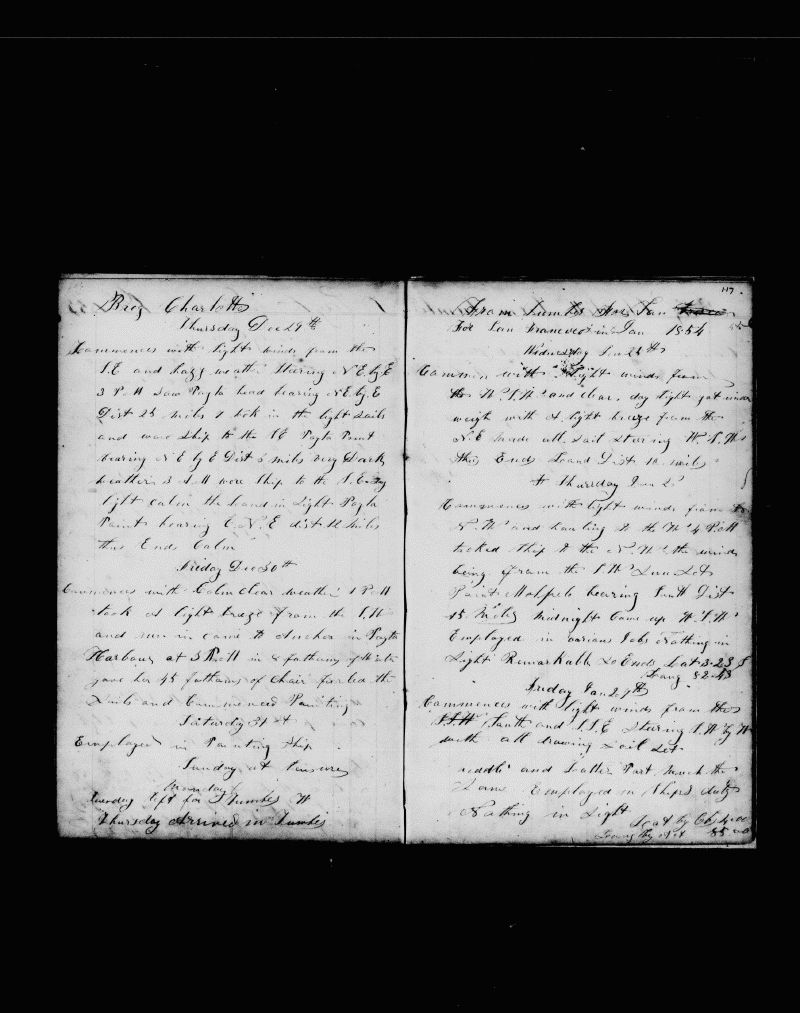 Brig Charlotte
Thursday Dec 29th
Commences with light winds from the
S.E and hazy weather Steering N E by E
3 P.M Saw Payta head bearing N E by E
Dist 25 miles & took in the light Sails
and wore Ship to the Payta Point
bearing N E by E Dist 5 miles very Dark
weather 3 A.M wore Ship to the S.E day
light calm the Land in Sight Payta
Point bearing E N. E dist 12 miles
thus Ends Calm
Friday Dec 30th
Commences with Calm Clear weather 1 P.M
took a light breze from the S.W
and run in came to Anchor in Payta
Harbour at 3 P.M in fathoms of Water
gave her 45 fathoms of Chain feerled the
Sails and Commenced Painting
Saturday 31st
Employed in Painting Ship
Sunday at
Monday
Tuesday left for Tumbes
Thursday Arrived in Tumbes
117
From Tumbes for San
For San in Jan 1854
Wednesday Jan 25th
Commen with Light winds from
the W.S.W and clear, day light got under
weigh with A light breeze from the
N.E made all Sail Steering W.S.W
this Ends Land Dist 10 miles
Thursday Jan
Commences with light winds from the
N.W and hauling to the W 4 P.M
tacked Ship to the N.W the winds
being from the S.W Sun Set
Point bearing South Dist
15 Miles Midnight Came up W.S.W
Employed in various Jobs Nothing in
Light Remarkable So Ends Lat 3-23 S
Long 82-43
Friday Jan 27th
Commences with light winds from the
S.S.W South and S.S.E Steering S.W by W
with all drawing Sail Set
and Part much the
Same Employed in Ships duty
Nothing in Sight
Lat by Obs
Long by